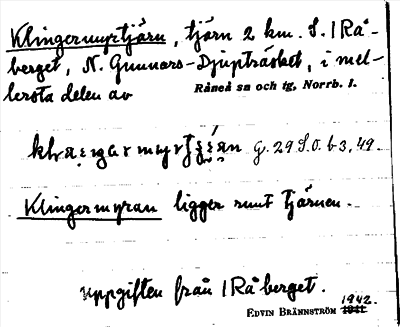 Klingermyrtjärn, tjärn 2 km. S. I Rå-
berget, N. Gunnars-Djupträsket, i mel-
lersta delen av
Råneå sn och tg, Norrb. l.
G. 29 S.O. b 3, 49.
Klingermyran ligger runt tjärnen.
Uppgiften från I Råberget.
1942.
EDVIN BRÄNNSTRÖM 1941